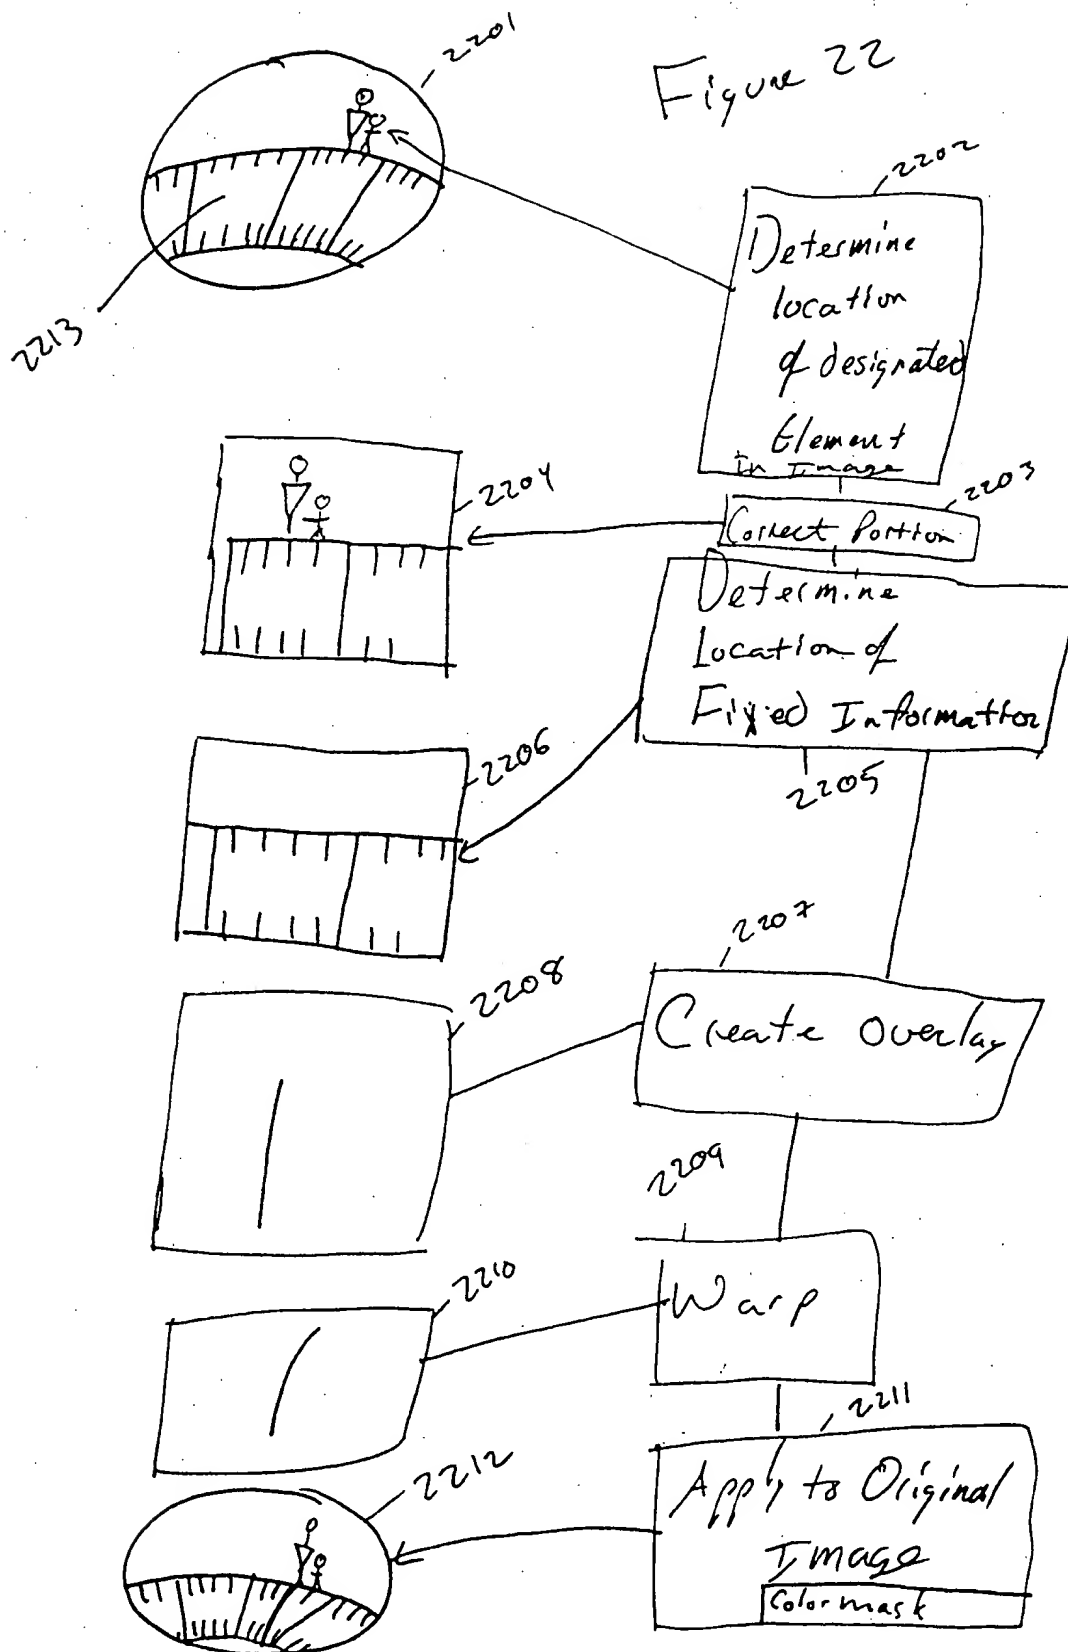 Figure 22
2201
2202
Determine
location
of designated
Element
In Image
2213
2203
Correct Portion
2204
Determine
Location of
Fixed Information
2205
2206
2207
Create Overlay
2208
2209
Warp
2210
2211
Apply to Original
Image
Color mask
2212